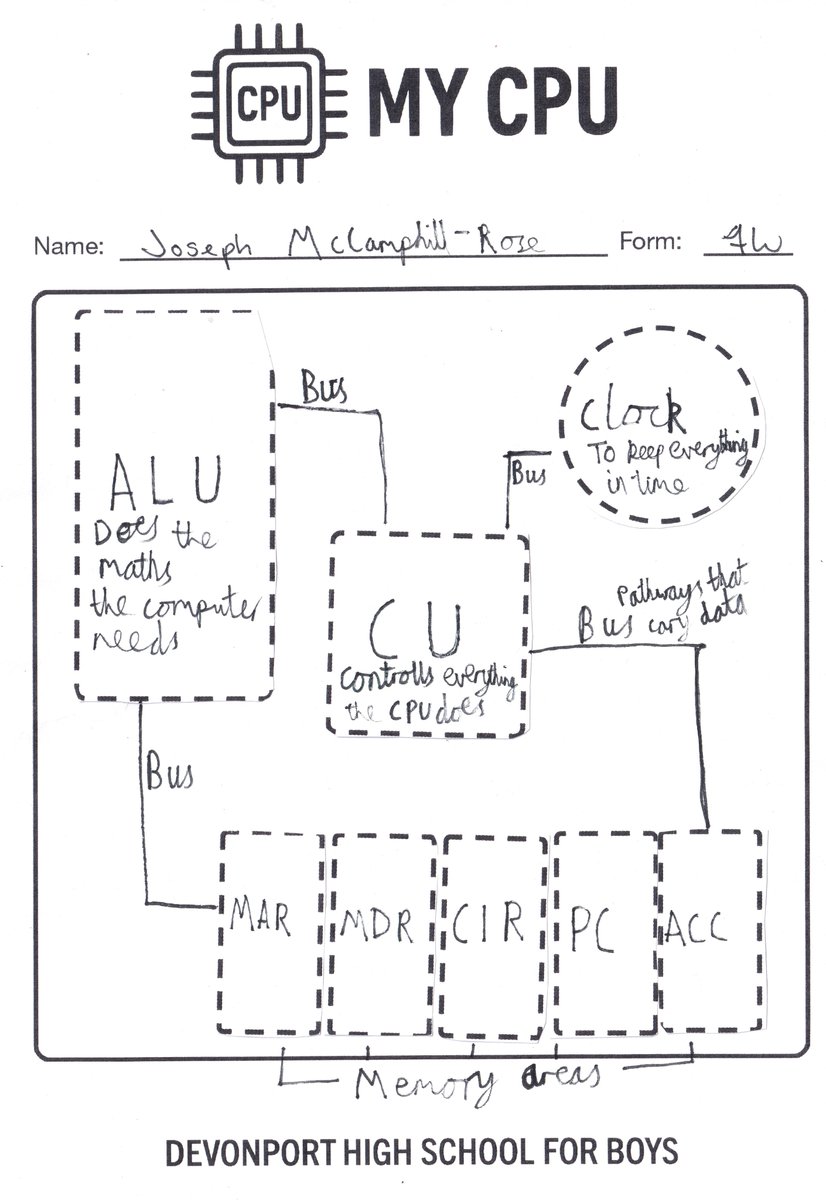 CPU
MY CPU
Name: Joseph McCamphill-Rose Form: 7W
Bus
Clock
To keep everything
in time
Bus
ALU
Does the
maths
the computer
needs
CU
controlls everything
the CPU does
Pathways that
Bus cary data
Bus
MAR
MDR
CIR
PC
ACC
Memory areas
DEVONPORT HIGH SCHOOL FOR BOYS